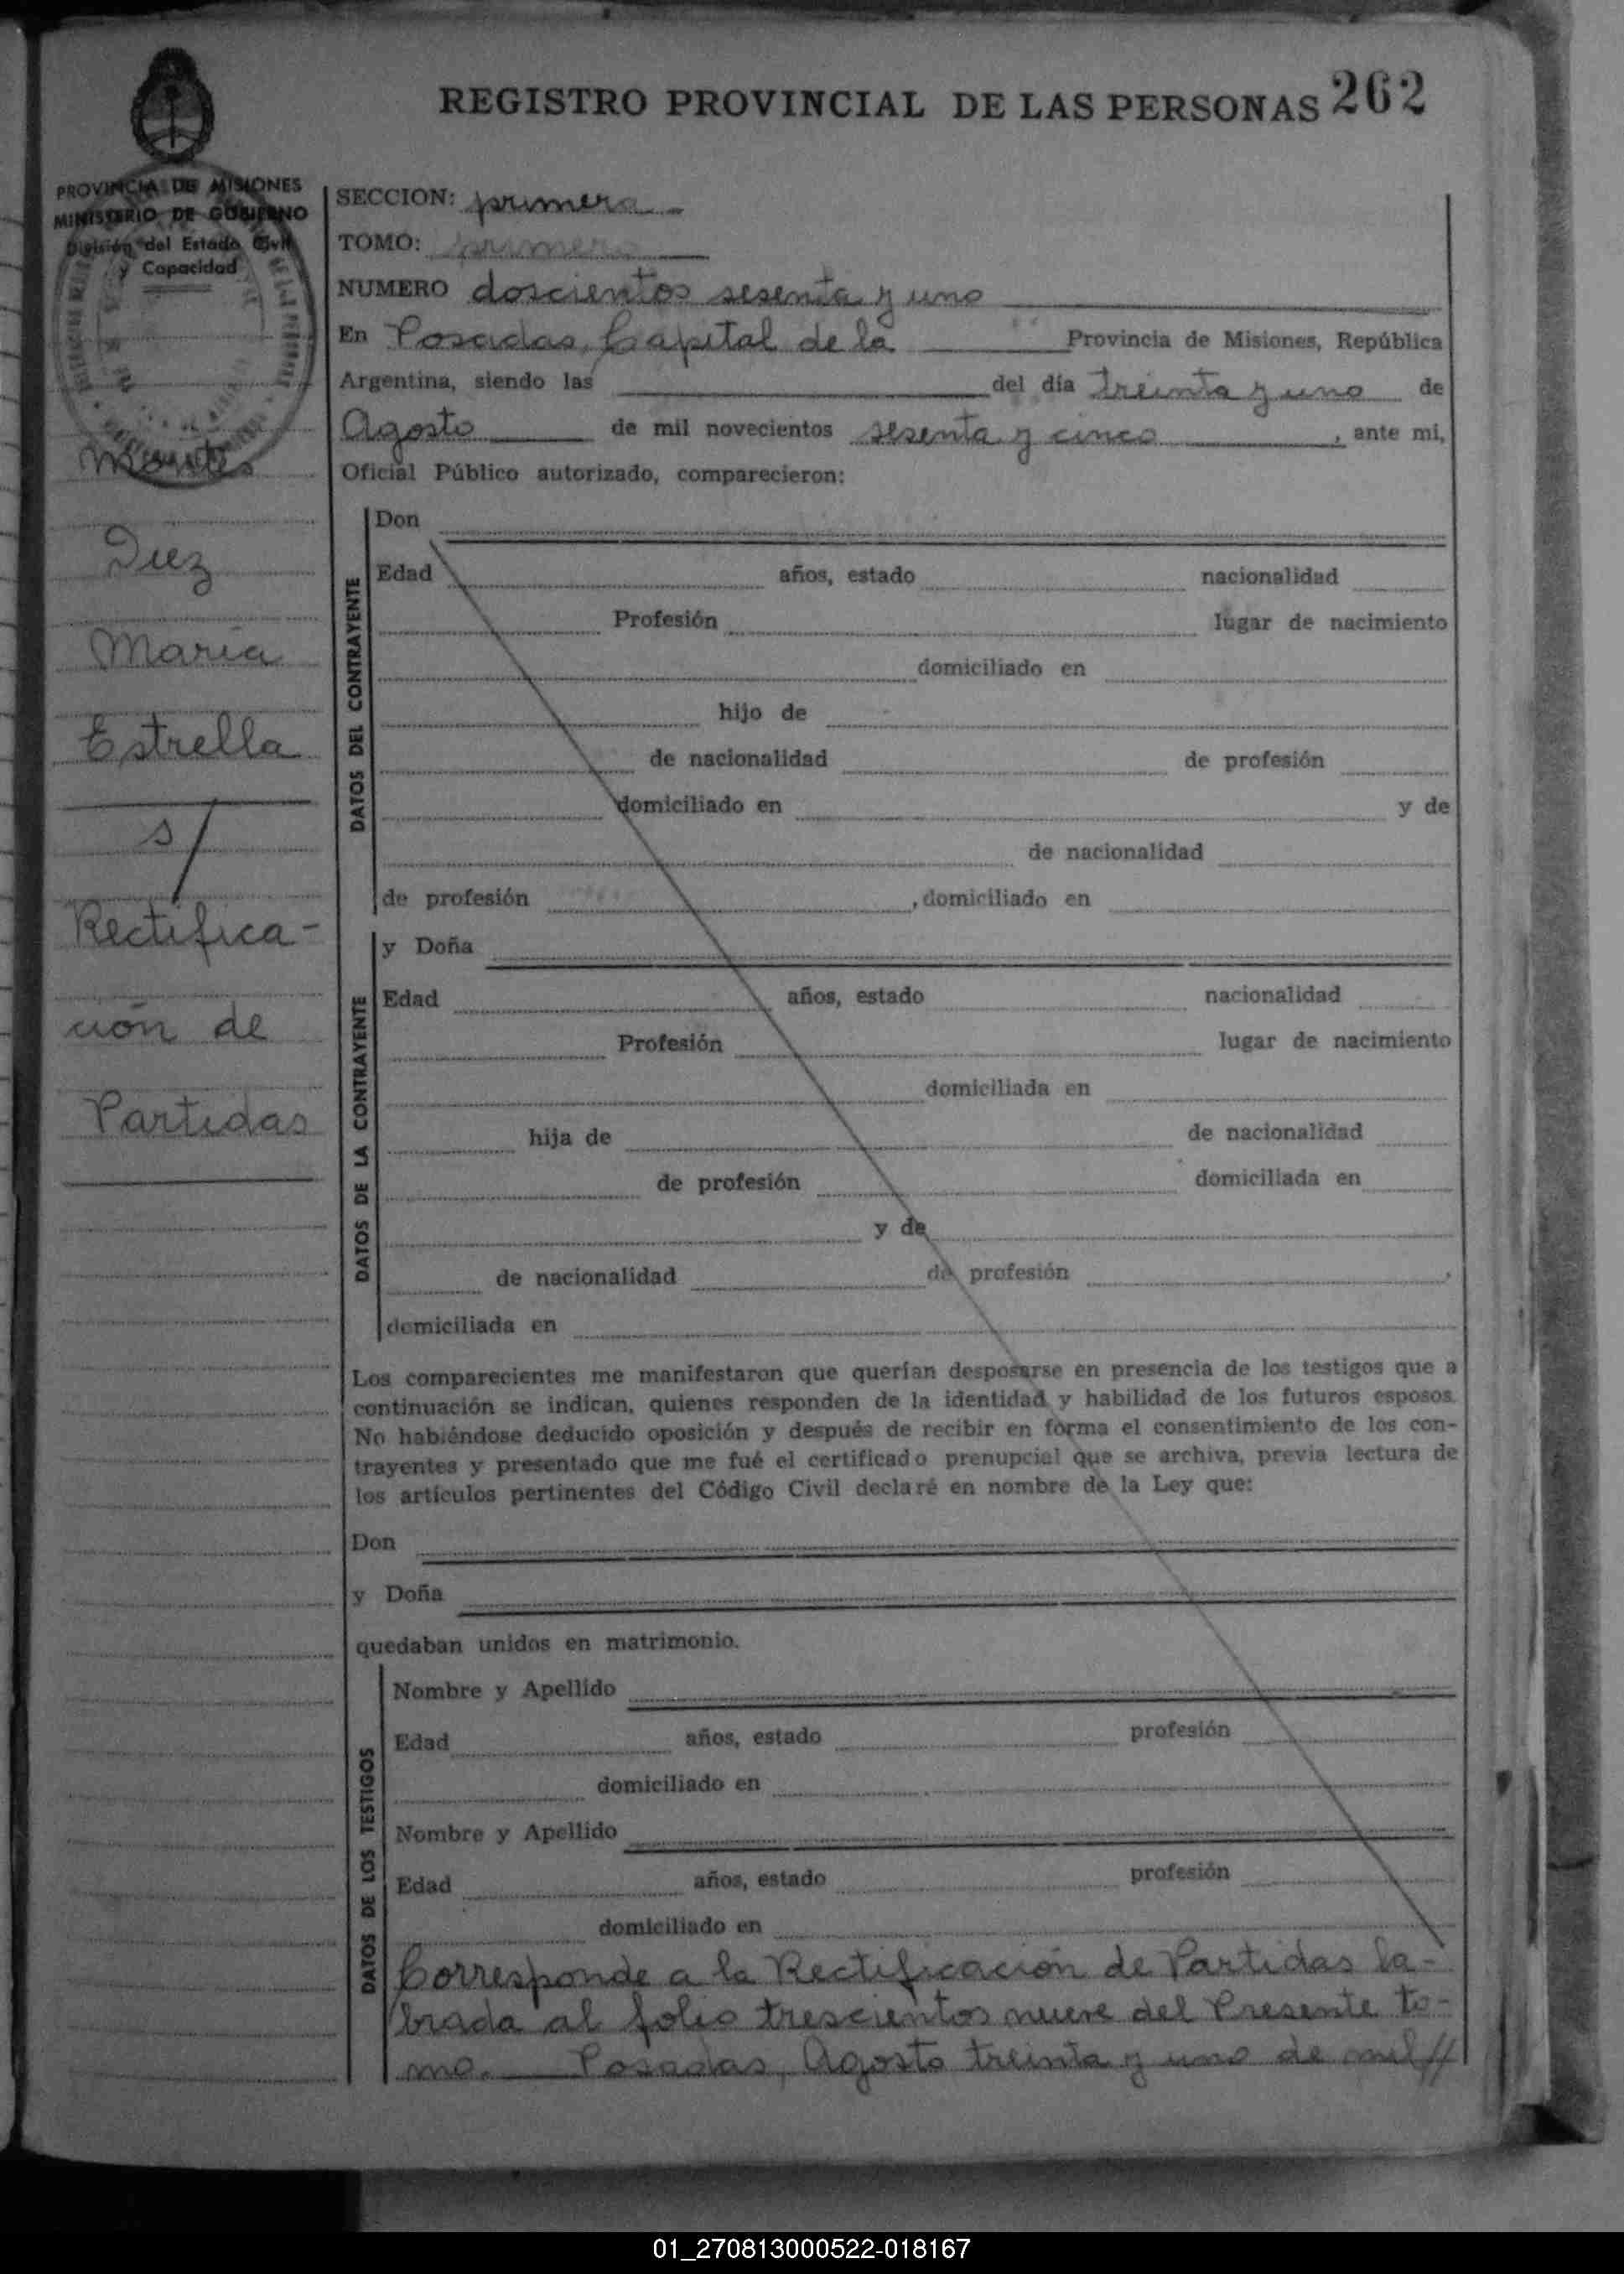 REGISTRO PROVINCIAL DE LAS PERSONAS 262
PROVINCIA DE MISIONES
MINISTERIO DE GOBIERNO
División del Estado Civil
y Capacidad
Montes
Diez
Maria
Estrella
s/
Rectifica-
ción de
Partidas
SECCION: primera
TOMO: primero
NUMERO doscientos sesenta y uno
En Posadas, Capital de la Provincia de Misiones, República
Argentina, siendo las del día treinta y uno de
Agosto de mil novecientos sesenta y cinco, ante mi,
Oficial Público autorizado, comparecieron:
DATOS DEL CONTRAYENTE
Don
Edad años, estado nacionalidad
Profesión lugar de nacimiento
domiciliado en
hijo de
de nacionalidad de profesión
domiciliado en y de
de nacionalidad
de profesión , domiciliado en
DATOS DE LA CONTRAYENTE
y Doña
Edad años, estado nacionalidad
Profesión lugar de nacimiento
domiciliada en
hija de de nacionalidad
de profesión domiciliada en
y de
de nacionalidad de profesión ,
domiciliada en
Los comparecientes me manifestaron que querían desposarse en presencia de los testigos que a
continuación se indican, quienes responden de la identidad y habilidad de los futuros esposos.
No habiéndose deducido oposición y después de recibir en forma el consentimiento de los con-
trayentes y presentado que me fué el certificado prenupcial que se archiva, previa lectura de
los artículos pertinentes del Código Civil declaré en nombre de la Ley que:
Don
y Doña
quedaban unidos en matrimonio.
DATOS DE LOS TESTIGOS
Nombre y Apellido
Edad años, estado profesión
domiciliado en
Nombre y Apellido
Edad años, estado profesión
domiciliado en
Corresponde a la Rectificación de Partidas la-
brada al folio trescientos nueve del Presente to-
mo. Posadas, Agosto treinta y uno de mil//
01_270813000522-018167